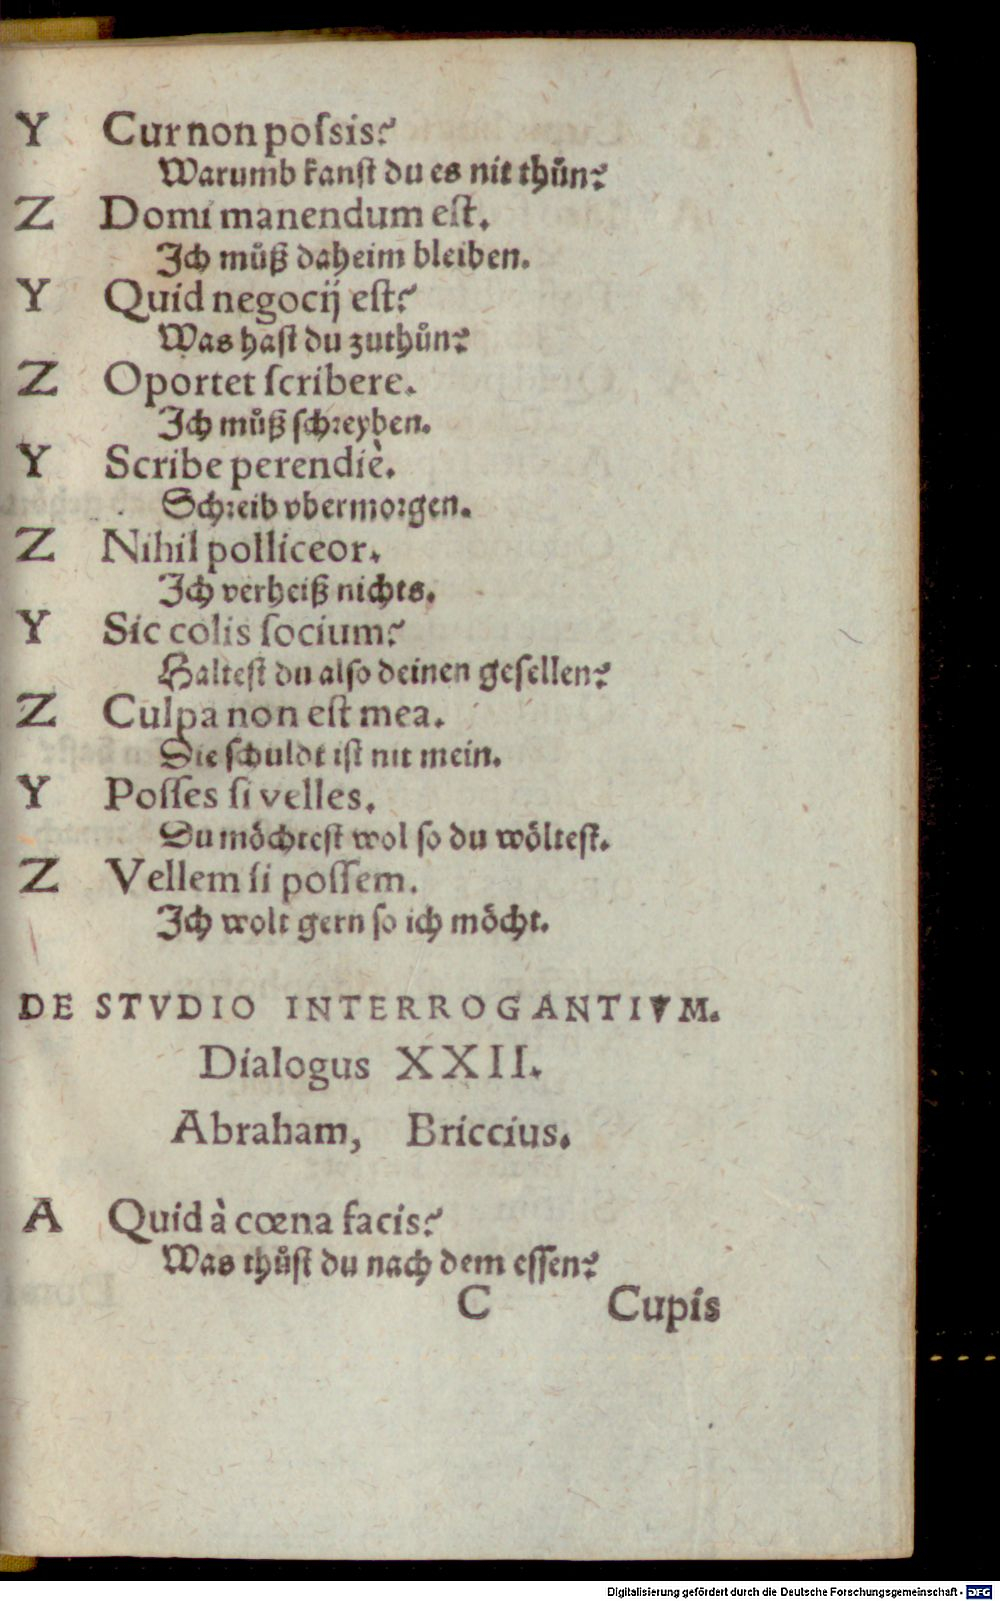 Y Cur non poſsis?
Warumb kanſt du es nit thůn?
Z Domi manendum eſt.
Ich můß daheim bleiben.
Y Quid negocij eſt?
Was haſt du zuthůn?
Z Oportet ſcribere.
Ich můß ſchreyben.
Y Scribe perendiè.
Schreib vbermorgen.
Z Nihil polliceor.
Ich verheiß nichts.
Y Sic colis ſocium?
Halteſt du alſo deinen geſellen?
Z Culpa non eſt mea.
Die ſchuldt iſt nit mein.
Y Poſſes ſi velles.
Du moͤchteſt wol ſo du woͤlteſt.
Z Vellem ſi poſſem.
Ich wolt gern ſo ich moͤcht.
DE STVDIO INTERROGANTIVM.
Dialogus XXII.
Abraham, Briccius.
A Quid à cœna facis?
Was thůſt du nach dem eſſen?
C Cupis
Digitalisierung gefördert durch die Deutsche Forschungsgemeinschaft - DFG